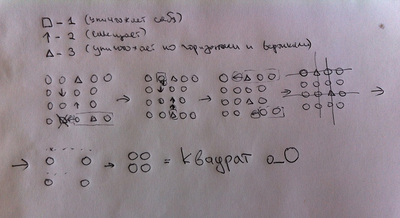 □ - 1 (уничтожает себя)
↑ - 2 (смещает)
Δ - 3 (уничтожает по горизонтали и вертикали)
= Квадрат о_О